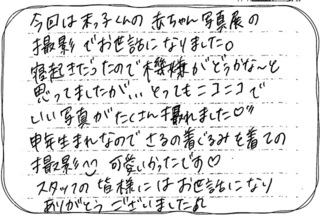 今回は末っ子くんの赤ちゃん写真展の
撮影でお世話になりました。
寝起きだったので機嫌がどうかな〜と
思ってましたが、、、とってもニコニコで
いい写真がたくさん撮れました♡"
申年生まれなのでさるの着ぐるみを着ての
撮影^^ 可愛いかったです♡
スタッフの皆様にはお世話になり
ありがとうございました♫